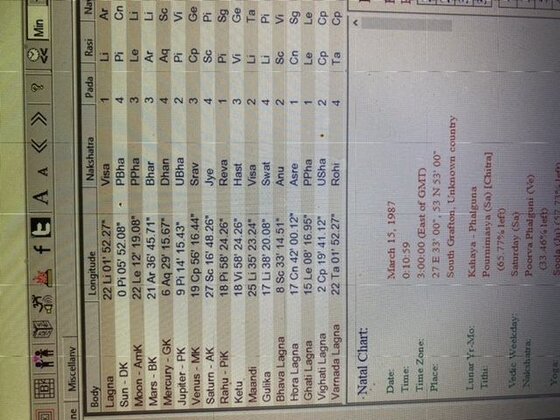 f A A << >> ? Min
Miscellany
Body Longitude Nakshatra Pada Rasi
Lagna 22 Li 01' 52.27" Visa 1 Li Ar
Sun - DK 0 Pi 05' 52.08" PBha 4 Pi Cn
Moon - AmK 22 Le 12' 19.08" PPha 3 Le Li
Mars - BK 21 Ar 36' 45.71" Bhar 3 Ar Li
Mercury - GK 6 Aq 29' 15.67" Dhan 4 Aq Sc
Jupiter - PK 9 Pi 14' 15.43" UBha 2 Pi Vi
Venus - MK 19 Cp 56' 16.44" Srav 3 Cp Ge
Saturn - AK 27 Sc 16' 48.26" Jye 4 Sc Pi
Rahu - PiK 18 Pi 58' 24.26" Reva 1 Pi Sg
Ketu 18 Vi 58' 24.26" Hast 3 Vi Ge
Maandi 25 Li 35' 23.24" Visa 2 Li Ta
Gulika 17 Li 38' 20.08" Swat 4 Li Pi
Bhava Lagna 8 Sc 33' 14.51" Anu 2 Sc Vi
Hora Lagna 17 Cn 42' 00.12" Asre 1 Cn Sg
Ghati Lagna 15 Le 08' 16.95" PPha 1 Le Le
Vighati Lagna 2 Cp 19' 41.12" USha 2 Cp Cp
Varnada Lagna 22 Ta 01' 52.27" Rohi 4 Ta Cp
Natal Chart:
Date: March 15, 1987
Time: 0:10:59
Time Zone: 3:00:00 (East of GMT)
Place: 27 E 33' 00", 53 N 53' 00"
South Grafton, Unknown country
Lunar Yr-Mo: Kshaya - Phalguna
Tithi: Pournimasya (Sa) [Chitra] (65.77% left)
Vedic Weekday: Saturday (Sa)
Nakshatra: Poorva Phalguni (Ve) (33.46% left)